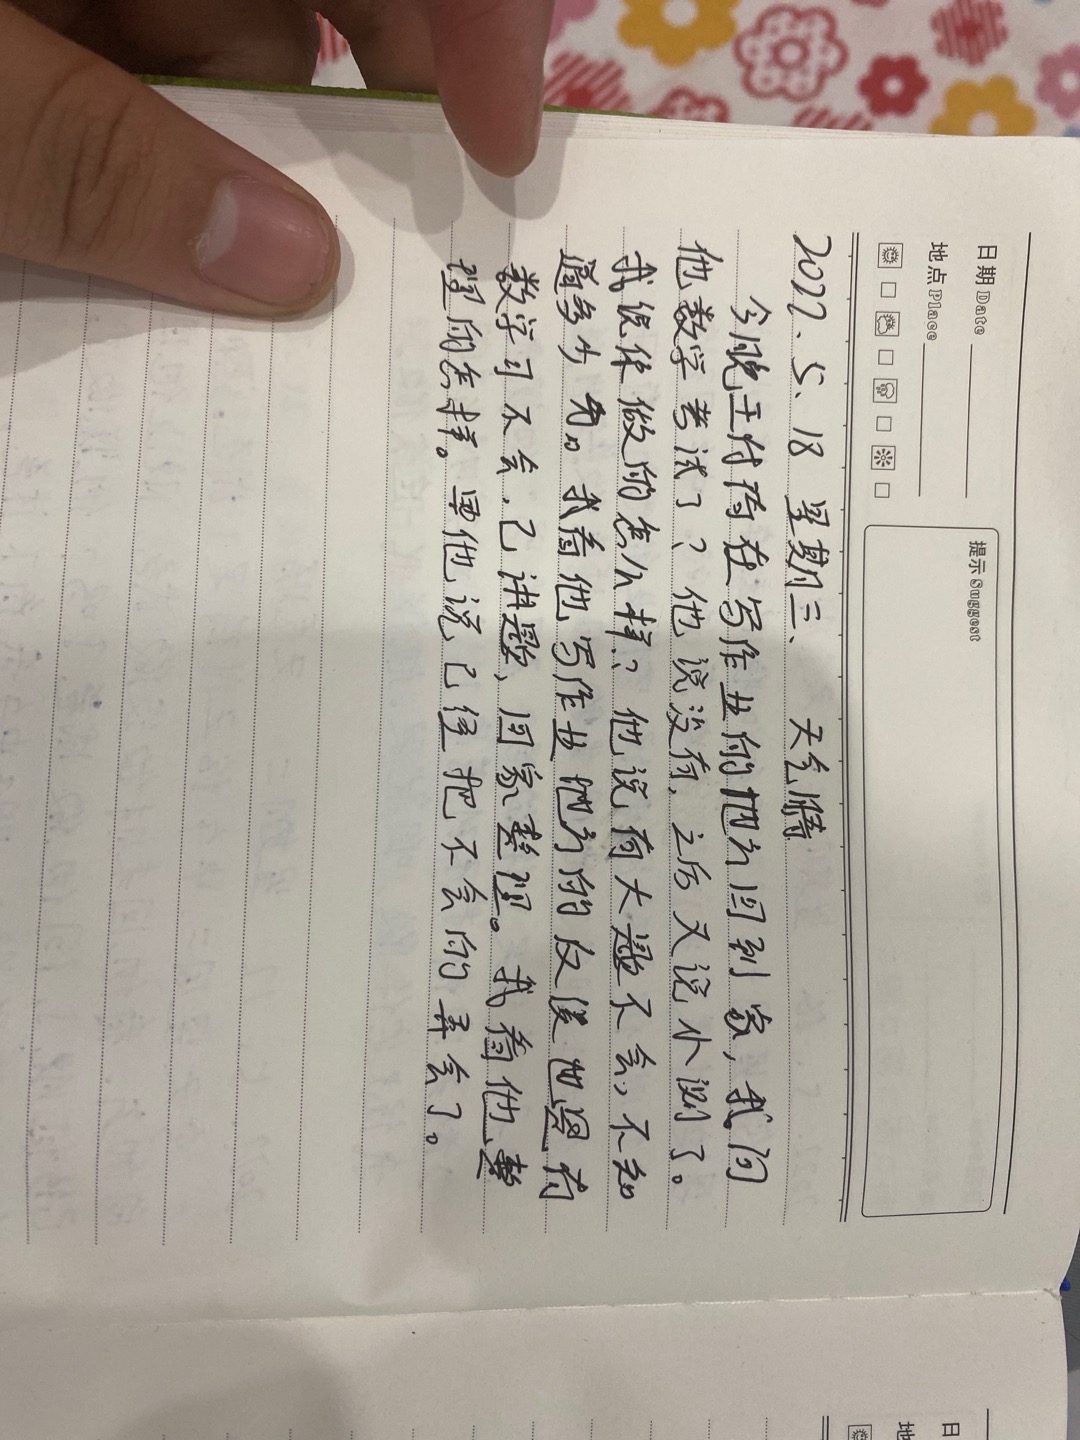 日期 Date
地点 Place
提示 Suggest
2022.5.18 星期三、 天气晴
今晚王付简在写作业的地方回到家,我问
他数学考试了?他说没有,之后又说小测了。
我说你做的怎么样?他说有大题不会,不知
道多少分。我看他写作业地方的反馈也是有
数学习不会,已讲题,回家整理。我看他整
理的怎样。里他说已经把不会的弄会了。
日
地